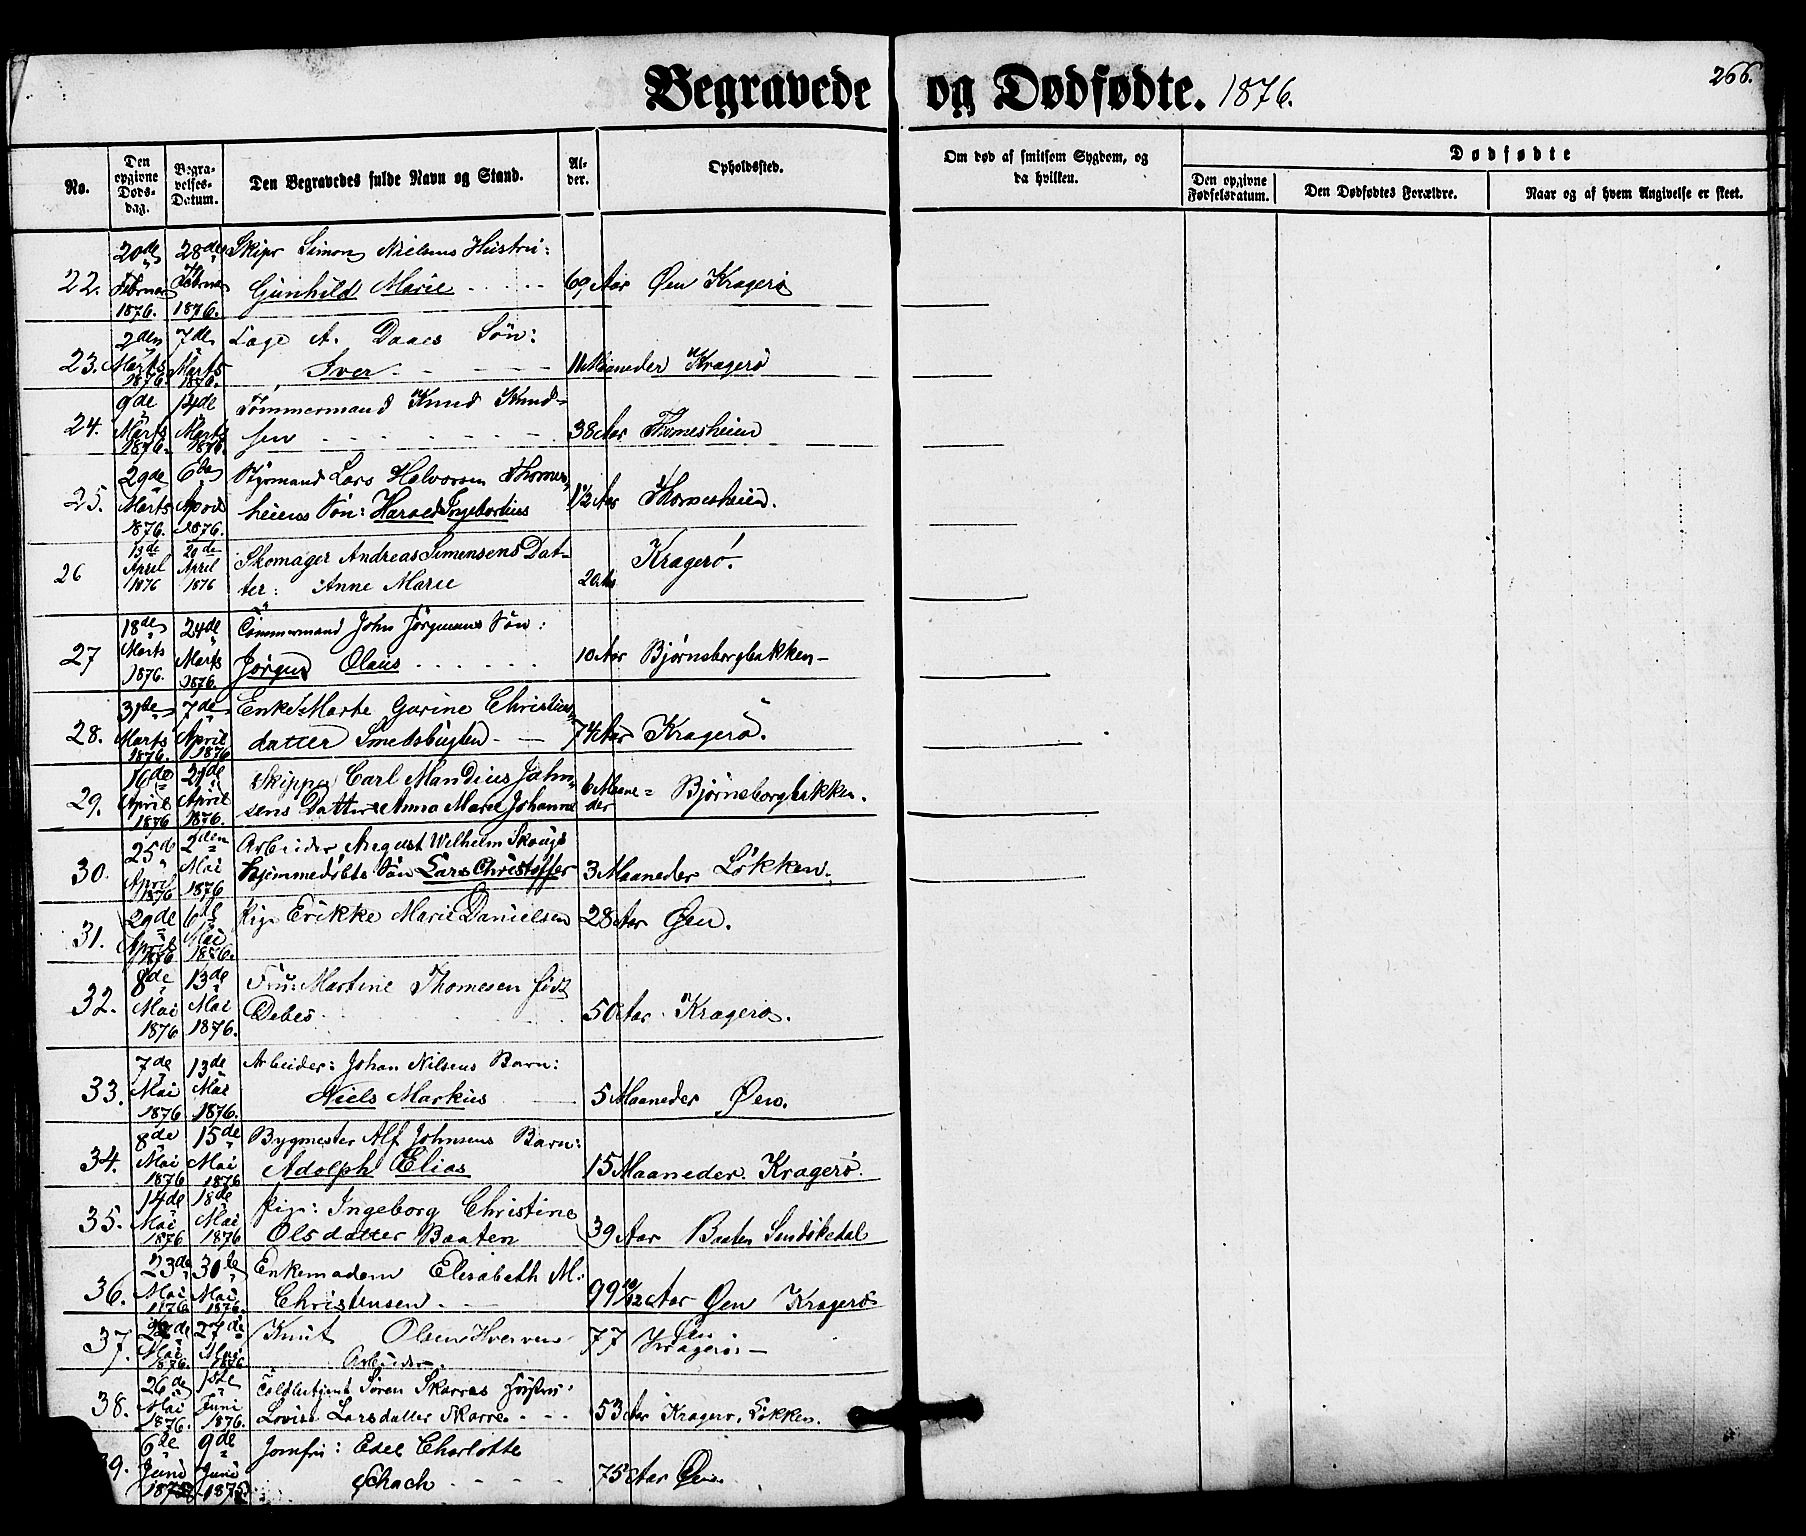 Begravede og Dødfødte. 1876.
266.
No.
Den opgivne Døds-dag.
Begra-velses-Datum.
Den Begravedes fulde Navn og Stand.
Al-der.
Opholdssted.
Om død af smitsom Sygdom, og da hvilken.
Dødfødte
Den opgivne Fødselsdatum.
Den Dødfødtes Forældre.
Naar og af hvem Angivelse er skeet.
22. 20de Februar 1876. 28de Februar 1876. Skipr Simon Nielsens Hustru:
Gunhild Marie 69 Aar Øen Kragerø
23. 2den Marts 1876. 7de Marts 1876. Lage A. Daaes Søn:
Iver 11 Maaneder Kragerö
24. 9de Marts 1876. 14de Marts 1876. Tömmermand Knud Knud=
sen 38 Aar
25. 29de Marts 1876. 6te April 1876. Styrmand Lars Halvorsen
heiens Søn: Harald Ingebortius 1½ Aar
26 13de April 1876 20de April 1876 Skomager Andreas Simensens Dat-
ter: Anne Marie 20 Aar Kragerö.
27 18de Marts 1876. 24de Marts 1876. Tömmermand John Jörgensens Søn:
Jørgen Olaus 10 Aar Bjørnsborgbakken-
28. 31te Marts 1876. 7de April 1876 Enke Marte Gurine Christians
datter Smedsbugten 74 Aar Kragerö.
29. 16de April 1876 21de April 1876. Skipper Carl Mandius John
sens Datter Anna Marie Johanne 6 Maane=
der Bjørnsborgbakken.
30. 25de April 1876 2den Mai 1876 Arbeider August Wilhelm Skougs
hjemmedöbte Søn Lars Christoffer 3 Maaneder Løkken.
31. 29de April 1876 6te Mai 1876. Pige Erikke Marie Danielsen 28 Aar Øen.
32. 8de Mai 1876 13de Mai 1876. Fru: Martine Thomesen født
Debes 50 Aar Kragerø.
33. 7de Mai 1876 13de Mai 1876. Arbeider: Johan Nilsens Barn:
Niels Markus 5 Maaneder Øen.
34. 8de Mai 1876 15de Mai 1876 Bygmester Alf Johnsens Barn:
Adolph Elias 15 Maaneder. Kragerö.
35. 14de Mai 1876 18de Mai 1876 Pige: Ingeborg Christine
Olsdatter Baaten 39 Aar Baaten Sandökedal
36. 23de Mai 1876 30te Mai 1876. Enkemadam Elisabeth M:
Christensen 99 10/12 Aar Øen Kragerø
37. Mai 1876. 27de Mai 1876 Knut Olsen
Arbeider. 77 Øen
Kragerö-
38. 26de Mai 1876. 1ste Juni 1876. Toldbetjent Søren Skarres Hustru:
Lovise Larsdatter Skarre 53 Aar Kragerø, Løkken.
39. 6de Juni 9de Juni Jomfru: Edel Charlotte
Schach 75 Aar Øen.